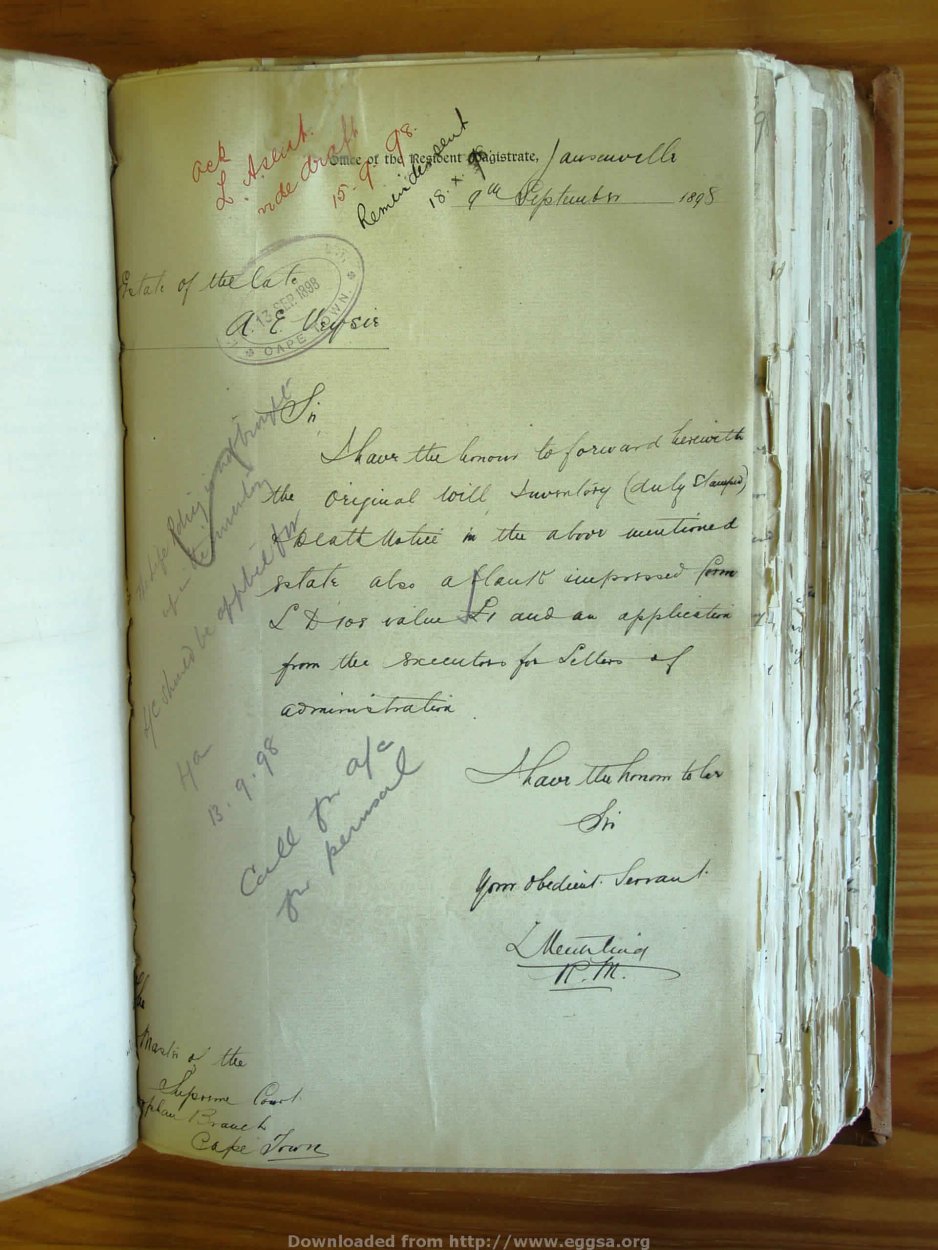 ack
vide draft
15.9.98.
Reminder sent
18.x.98
Office of the Resident Magistrate, Jansenville
9th September 1898
Estate of the late
A. E. Veysie
13 SEP. 1898
CAPE TOWN.
Sir
I have the honour to forward herewith
the original Will Inventory (duly stamped)
& Death Notice in the above mentioned
estate also a blank impressed form
L D 108 value £1 and an application
from the executors for Letters of
administration
not brought
up in the inventory
a/c should be applied for
13.9.98
Call for a/c
for perusal
I have the honour to be
Sir
Your obedient Servant
R. M.
The
Master of the
Supreme Court
Orphan Branch
Cape Town
Downloaded from http://www.eggsa.org